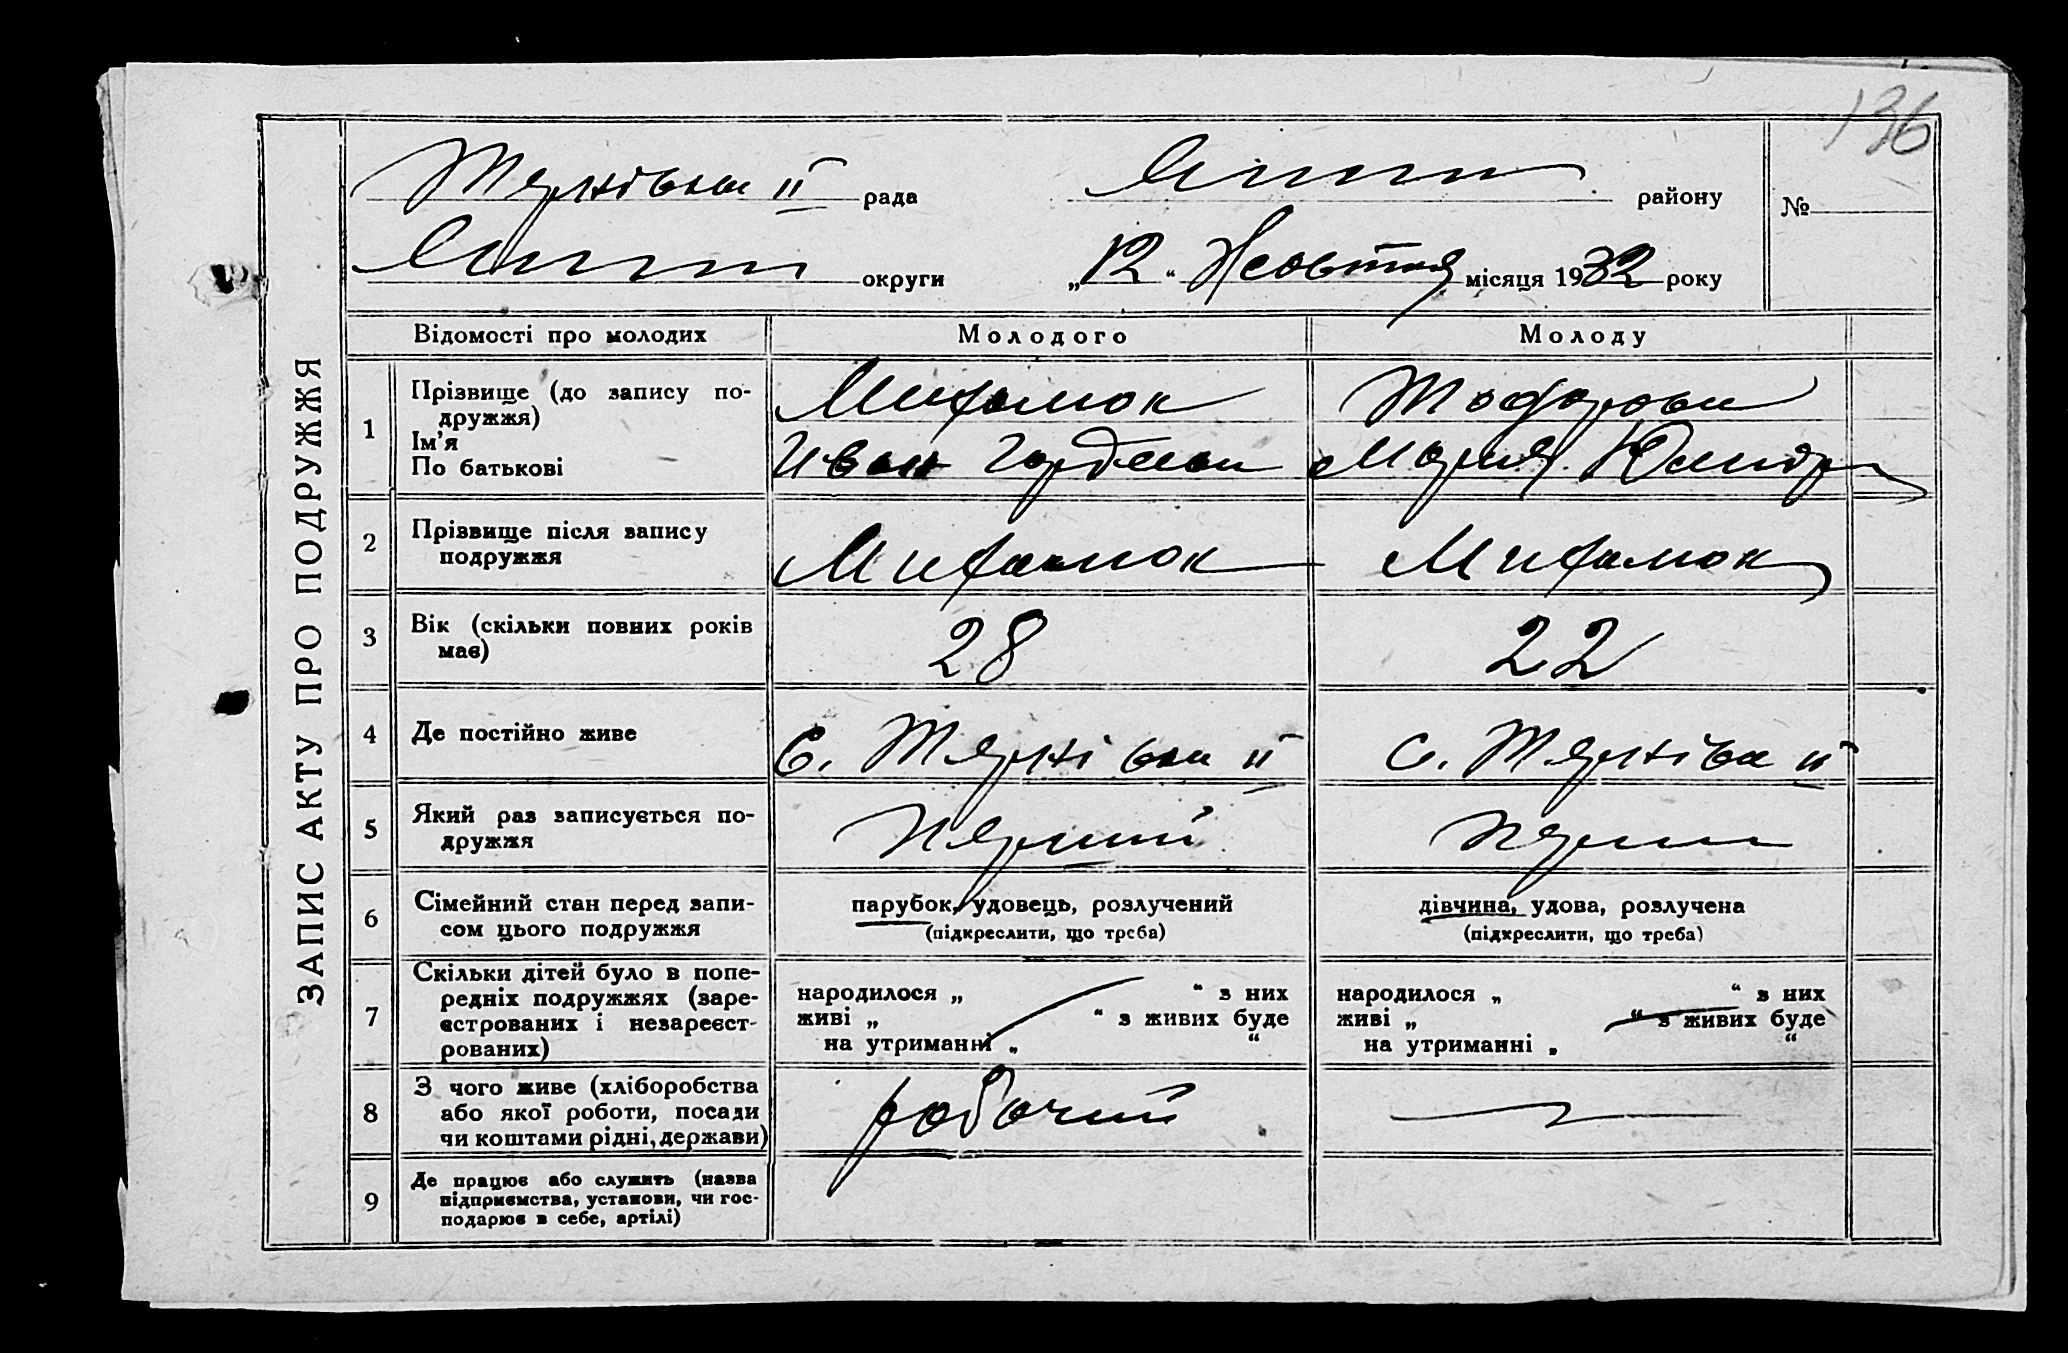 136
Тернівська II рада района №
округи „12“ Жовтня місяця 1932 року
ЗАПИС АКТУ ПРО ПОДРУЖЖЯ
Відомості про молодих Молодого Молоду
1 Прізвище (до запису по-
дружжя)
Ім'я
По батькові
Михалюк
Иван
Тодорова
Мария
2 Прізвище після запису
подружжя
Михалюк Михалюк
3 Вік (скільки повних років
має)
28 22
4 Де постійно живе
с. Тернівка II с. Тернівка II
5 Який раз записується по-
дружжя
Перший Перши
6 Сімейний стан перед запи-
сом цього подружжя
парубок, удовець, розлучений
(підкреслити, що треба)
дівчина, удова, розлучена
(підкреслити, що треба)
7 Скільки дітей було в попе-
редніх подружжях (заре-
єстрованих і незареєст-
рованих)
народилося „ “ з них
живі „ “ з живих буде
на утриманні „ “
народилося „ “ з них
живі „ “ з живих буде
на утриманні „ “
8 З чого живе (хліборобства
або якої роботи, посади
чи коштами рідні, держави)
робочий
9 Де працює або служить (назва
підприємства, установи, чи гос-
подарює в себе, артілі)